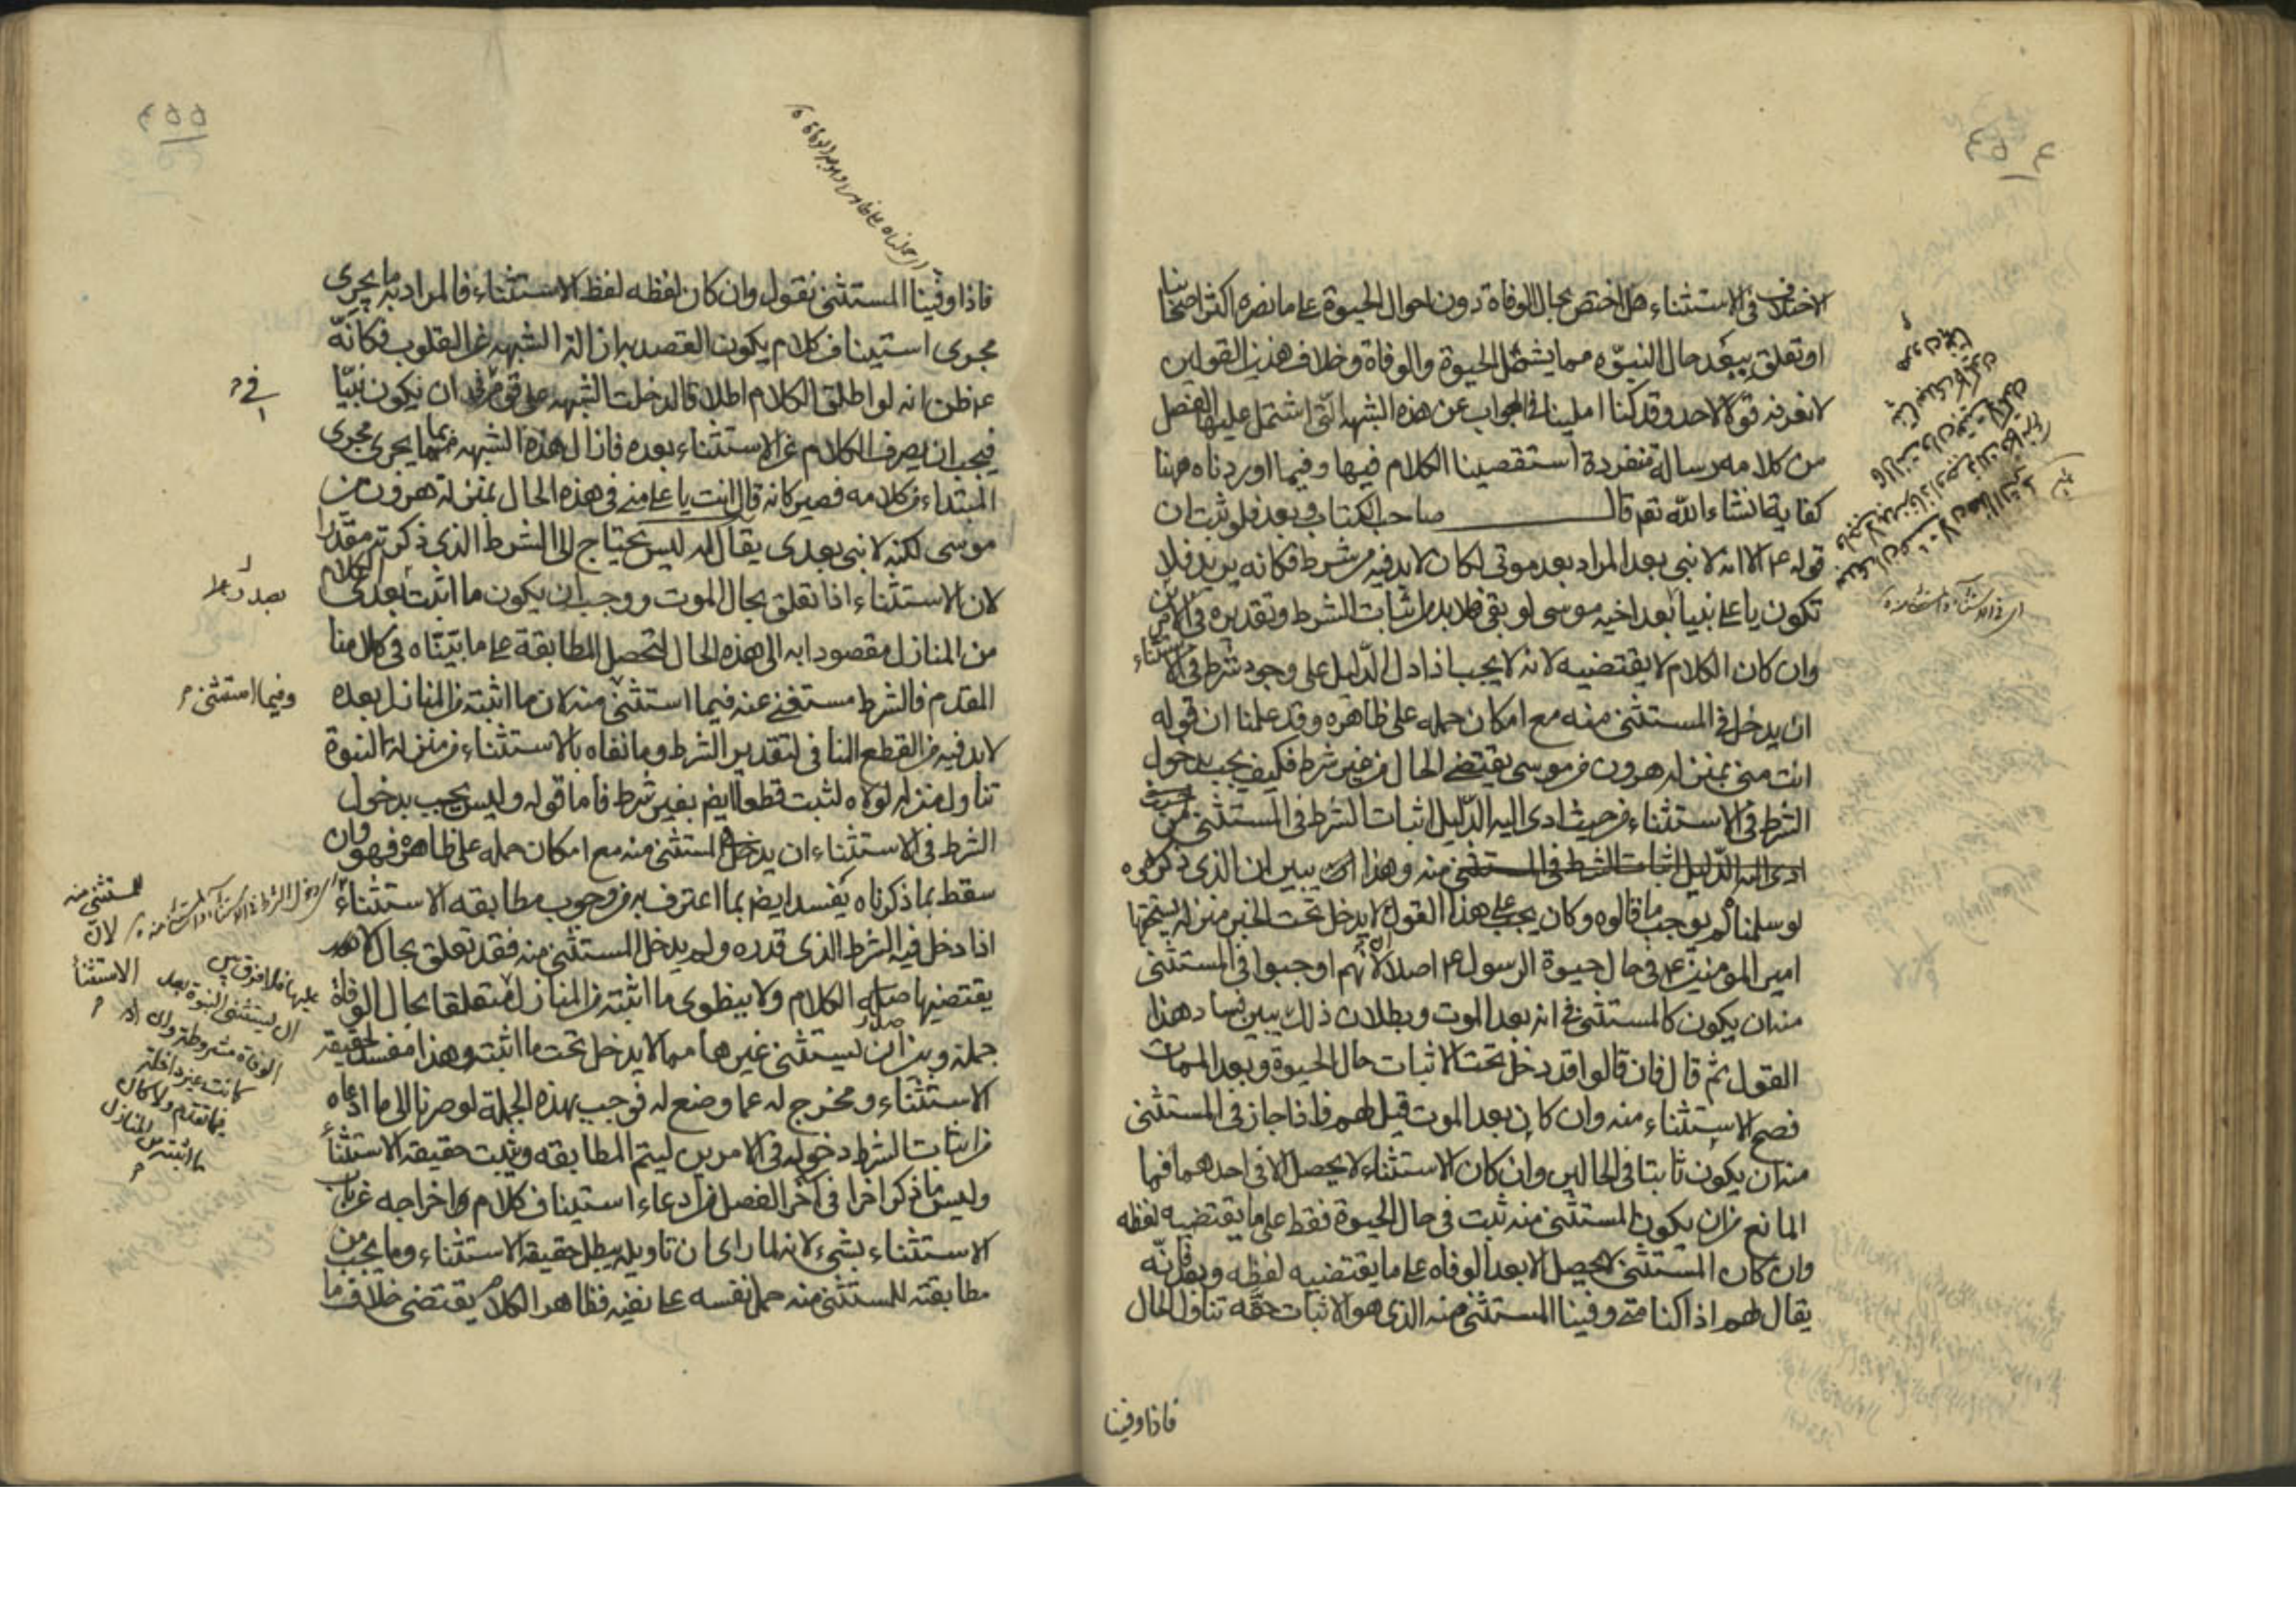 ٤٥٤
الاختلاف فى الاستثناء هل اختص بحال الوفاة دون احوال الحيوة على ما نصره اكثر اصحابنا
او تعلق ببعد حال النبوّه مما يشتمل الحيوة والوفاة وخلاف هذين القولين
لا نعرفه قولا لاحد وقد كنا املينا فى الجواب عن هذه الشبهه التى اشتمل عليها الفصل
من كلامه رساله منفردة استقصينا الكلام فيها وفيما اوردناه ههنا
كفاية انشاء الله تعم قال صاحب الكتاب وبعد فلو ثبت ان
قوله ع م الا انه لا نبى بعد المراد بعد موتى لكان لا بد فيه من شرط فكانه يريد فلا
تكون يا على نبيا بعد اخيه موسى لو بقى فلا بد من اثبات الشرط وتقديره فى الامرين
وان كان الكلام لا يقتضيه لانه لا يجب اذا دل الدّليل على وجود شرط فى الاستثناء
ان يدخل فى المستثنى منه مع امكان حمله على ظاهره وقد علمنا ان قوله
انت منى بمنزله هرون من موسى يقتضى الحال من غير شرط فكيف يجب بدخول
الشرط فى الاستثناء من حيث ادى اليه الدّليل اثبات الشرط فى المستثنى من
ادى اليه الدّليل اثبات الشرط فى المستثنى منه وهذا يبين ان الذى ذكروه
لو سلمناه لم يوجب ما قالوه وكان يجب على هذا القول الا يدخل تحت الخبر منزله يستحقها
امير المومنين ع م فى حال حيوة الرسول ع م اصلا لانهم اوجبوا فى المستثنى
منه ان يكون كالمستثنى فى انه بعد الموت وبطلان ذلك يبين فساد هذا
القول ثم قال فان قالوا قد دخل تحت الاثبات حال الحيوة وبعد الممات
فصح الاستثناء منه وان كان بعد الموت قيل لهم فاذا جاز فى المستثنى
منه ان يكون ثابتا فى الحالين وان كان الاستثناء لا يحصل الا فى احدهما فما
المانع من ان يكون المستثنى منه ثبت فى حال الحيوة فقط على ما يقتضيه لفظه
وان كان المستثنى لا يحصل الا بعد الوفاه على ما يقتضيه لفظه وبعد فانّه
يقال لهم اذا كنا متى وفينا المستثنى منه الذى هو الاثبات حقه تناول الحال
فاذا وفينا
٤٥٥
فاذا وفينا المستثنى نقول وان كان لفظه لفظ الاستثناء فالمراد به ما يجرى
مجرى استيناف كلام يكون القصد به ازالة الشبهه عن القلوب فكانّه
ع م ظن انه لو اطلق الكلام اطلاقا لدخلت الشبهه على قوم فى ان يكون نبيّا
فيجب ان يصرف الكلام عن الاستثناء بعده فازال هذه الشبهه بما يجرى مجرى
المبتداء من كلامه فصير كانه قال انت يا على منى فى هذه الحال بمنزله هرون من
موسى لكنه لا نبى بعدى يقال له ليس يحتاج الى الشرط الذى ذكرته مقدّرا
لان الاستثناء اذا تعلق بحال الموت ووجب ان يكون ما اثبت بعدى
بصدر الكلام
من المنازل مقصودا به الى هذه الحال لتحصل المطابقة على ما بيّنّاه فى كلامنا
المقدم فالشرط مستغنى عنه فيما استثنى منه لان ما اثبته من المنازل بعده
وفيما استثنى
لا بد فيه من القطع النافى لتقدير الشرط وما نفاه بالاستثناء من منزلة النبوة
تناول منزله لولاه لثبت قطعا ايضا بغير شرط فاما قوله وليس يجب بدخول
الشرط فى الاستثناء ان يدخل المستثنى منه مع امكان حمله على ظاهره فهو وان
سقط بما ذكرناه يفسد ايضا بما اعترف به من وجوب مطابقه الاستثناء
للمستثنى منه لان الاستثناء
اذا دخل فيه الشرط الذى قدره ولم يدخل المستثنى منه فقد تعلق بحال لا
يقتضيها صدر الكلام ولا ينطوى ما اثبته من المنازل متعلقا بحال الوفاة
عليها فلا فرق بين
ان يستثنى النبوة بعد
الوفاة مشروطة وان
كانت غير داخلة
فيما تقدم ولا كان
ما اثبته من المنازل
جملة وبين ان يستثنى غيرها مما لا يدخل تحت ما اثبته وهذا مفسد لحقيقة
الاستثناء ومخرج له عما وضع له فوجب بهذه الجملة لو صرنا الى ما ادعاه
من اثبات الشرط دخوله فى الامرين ليتم المطابقه ويثبت حقيقه الاستثناء
وليس ما ذكر اخرا فى آخر الفصل من ادعاء استيناف كلام واخراجه عن باب
الاستثناء بشىء لانه لما راى ان تاويله يبطل حقيقة الاستثناء وما يجب من
مطابقته للمستثنى منه حمل نفسه على نفيه فظاهر الكلام يقتضى خلاف ما